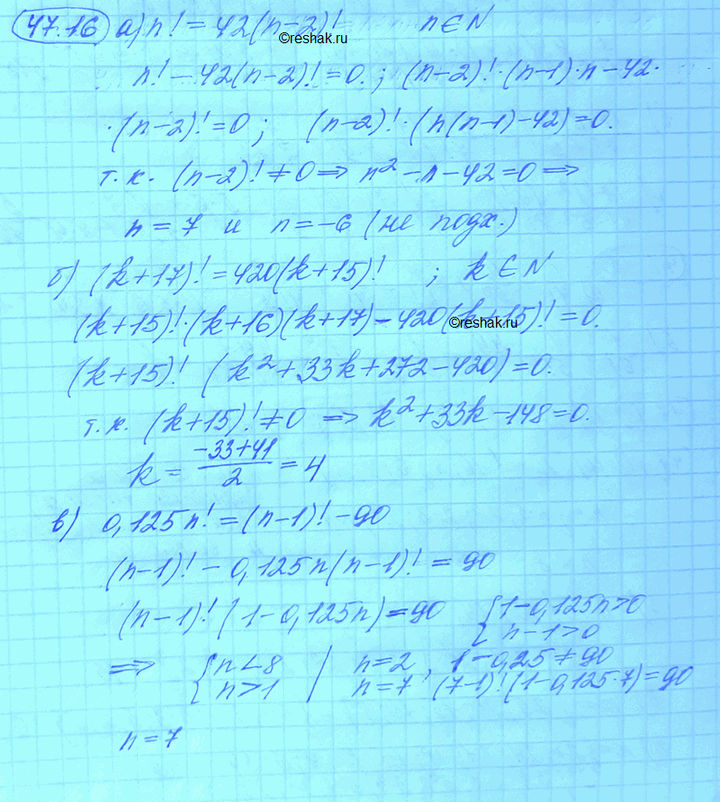 47.16 а) n! = 42(n-2)! n∈N
©reshak.ru
n! - 42(n-2)! = 0. ; (n-2)!·(n-1)·n - 42·
·(n-2)! = 0 ; (n-2)!·(n(n-1)-42) = 0.
т.к. (n-2)! ≠ 0 ⇒ n² - n - 42 = 0 ⇒
n = 7 и n = -6 (не подх.)
б) (k+17)! = 420(k+15)! ; k∈N
(k+15)!·(k+16)(k+17) - 420(k+15)! = 0.
©reshak.ru
(k+15)! (k² + 33k + 272 - 420) = 0.
т.к. (k+15)! ≠ 0 ⇒ k² + 33k - 148 = 0.
k = (-33+41)/2 = 4
в) 0,125n! = (n-1)! - 90
(n-1)! - 0,125n(n-1)! = 90
(n-1)! (1 - 0,125n) = 90 { 1 - 0,125n > 0
n - 1 > 0
⇒ { n < 8 | n = 2, 1 - 0,25 ≠ 90
n > 1 | n = 7, (7-1)! (1 - 0,125·7) = 90
n = 7